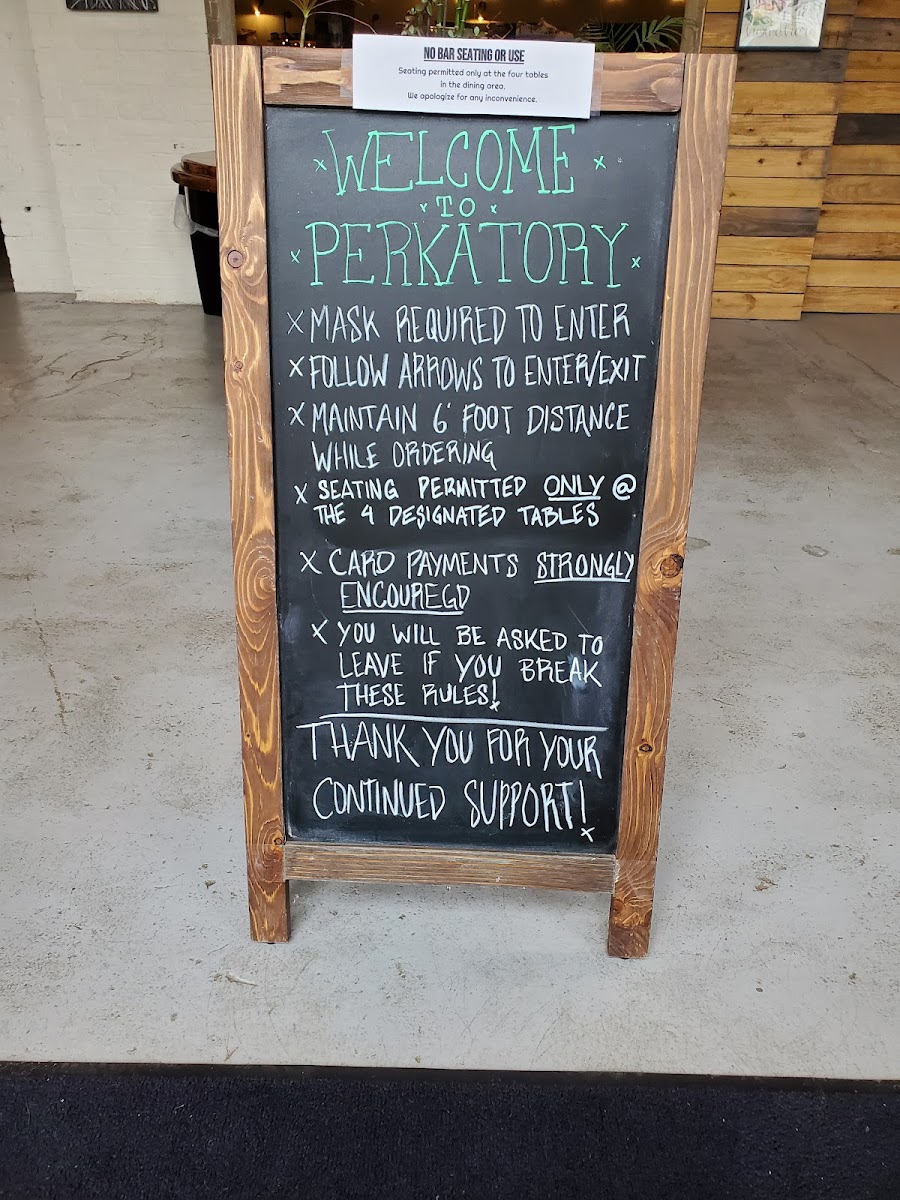 NO BAR SEATING OR USE
Seating permitted only at the four tables
in the dining area.
We apologize for any inconvenience.
WELCOME
TO
PERKATORY
X MASK REQUIRED TO ENTER
X FOLLOW ARROWS TO ENTER/EXIT
X MAINTAIN 6' FOOT DISTANCE
WHILE ORDERING
X SEATING PERMITTED ONLY @
THE 4 DESIGNATED TABLES
X CARD PAYMENTS STRONGLY
ENCOUREGD
X YOU WILL BE ASKED TO
LEAVE IF YOU BREAK
THESE RULES!
THANK YOU FOR YOUR
CONTINUED SUPPORT!